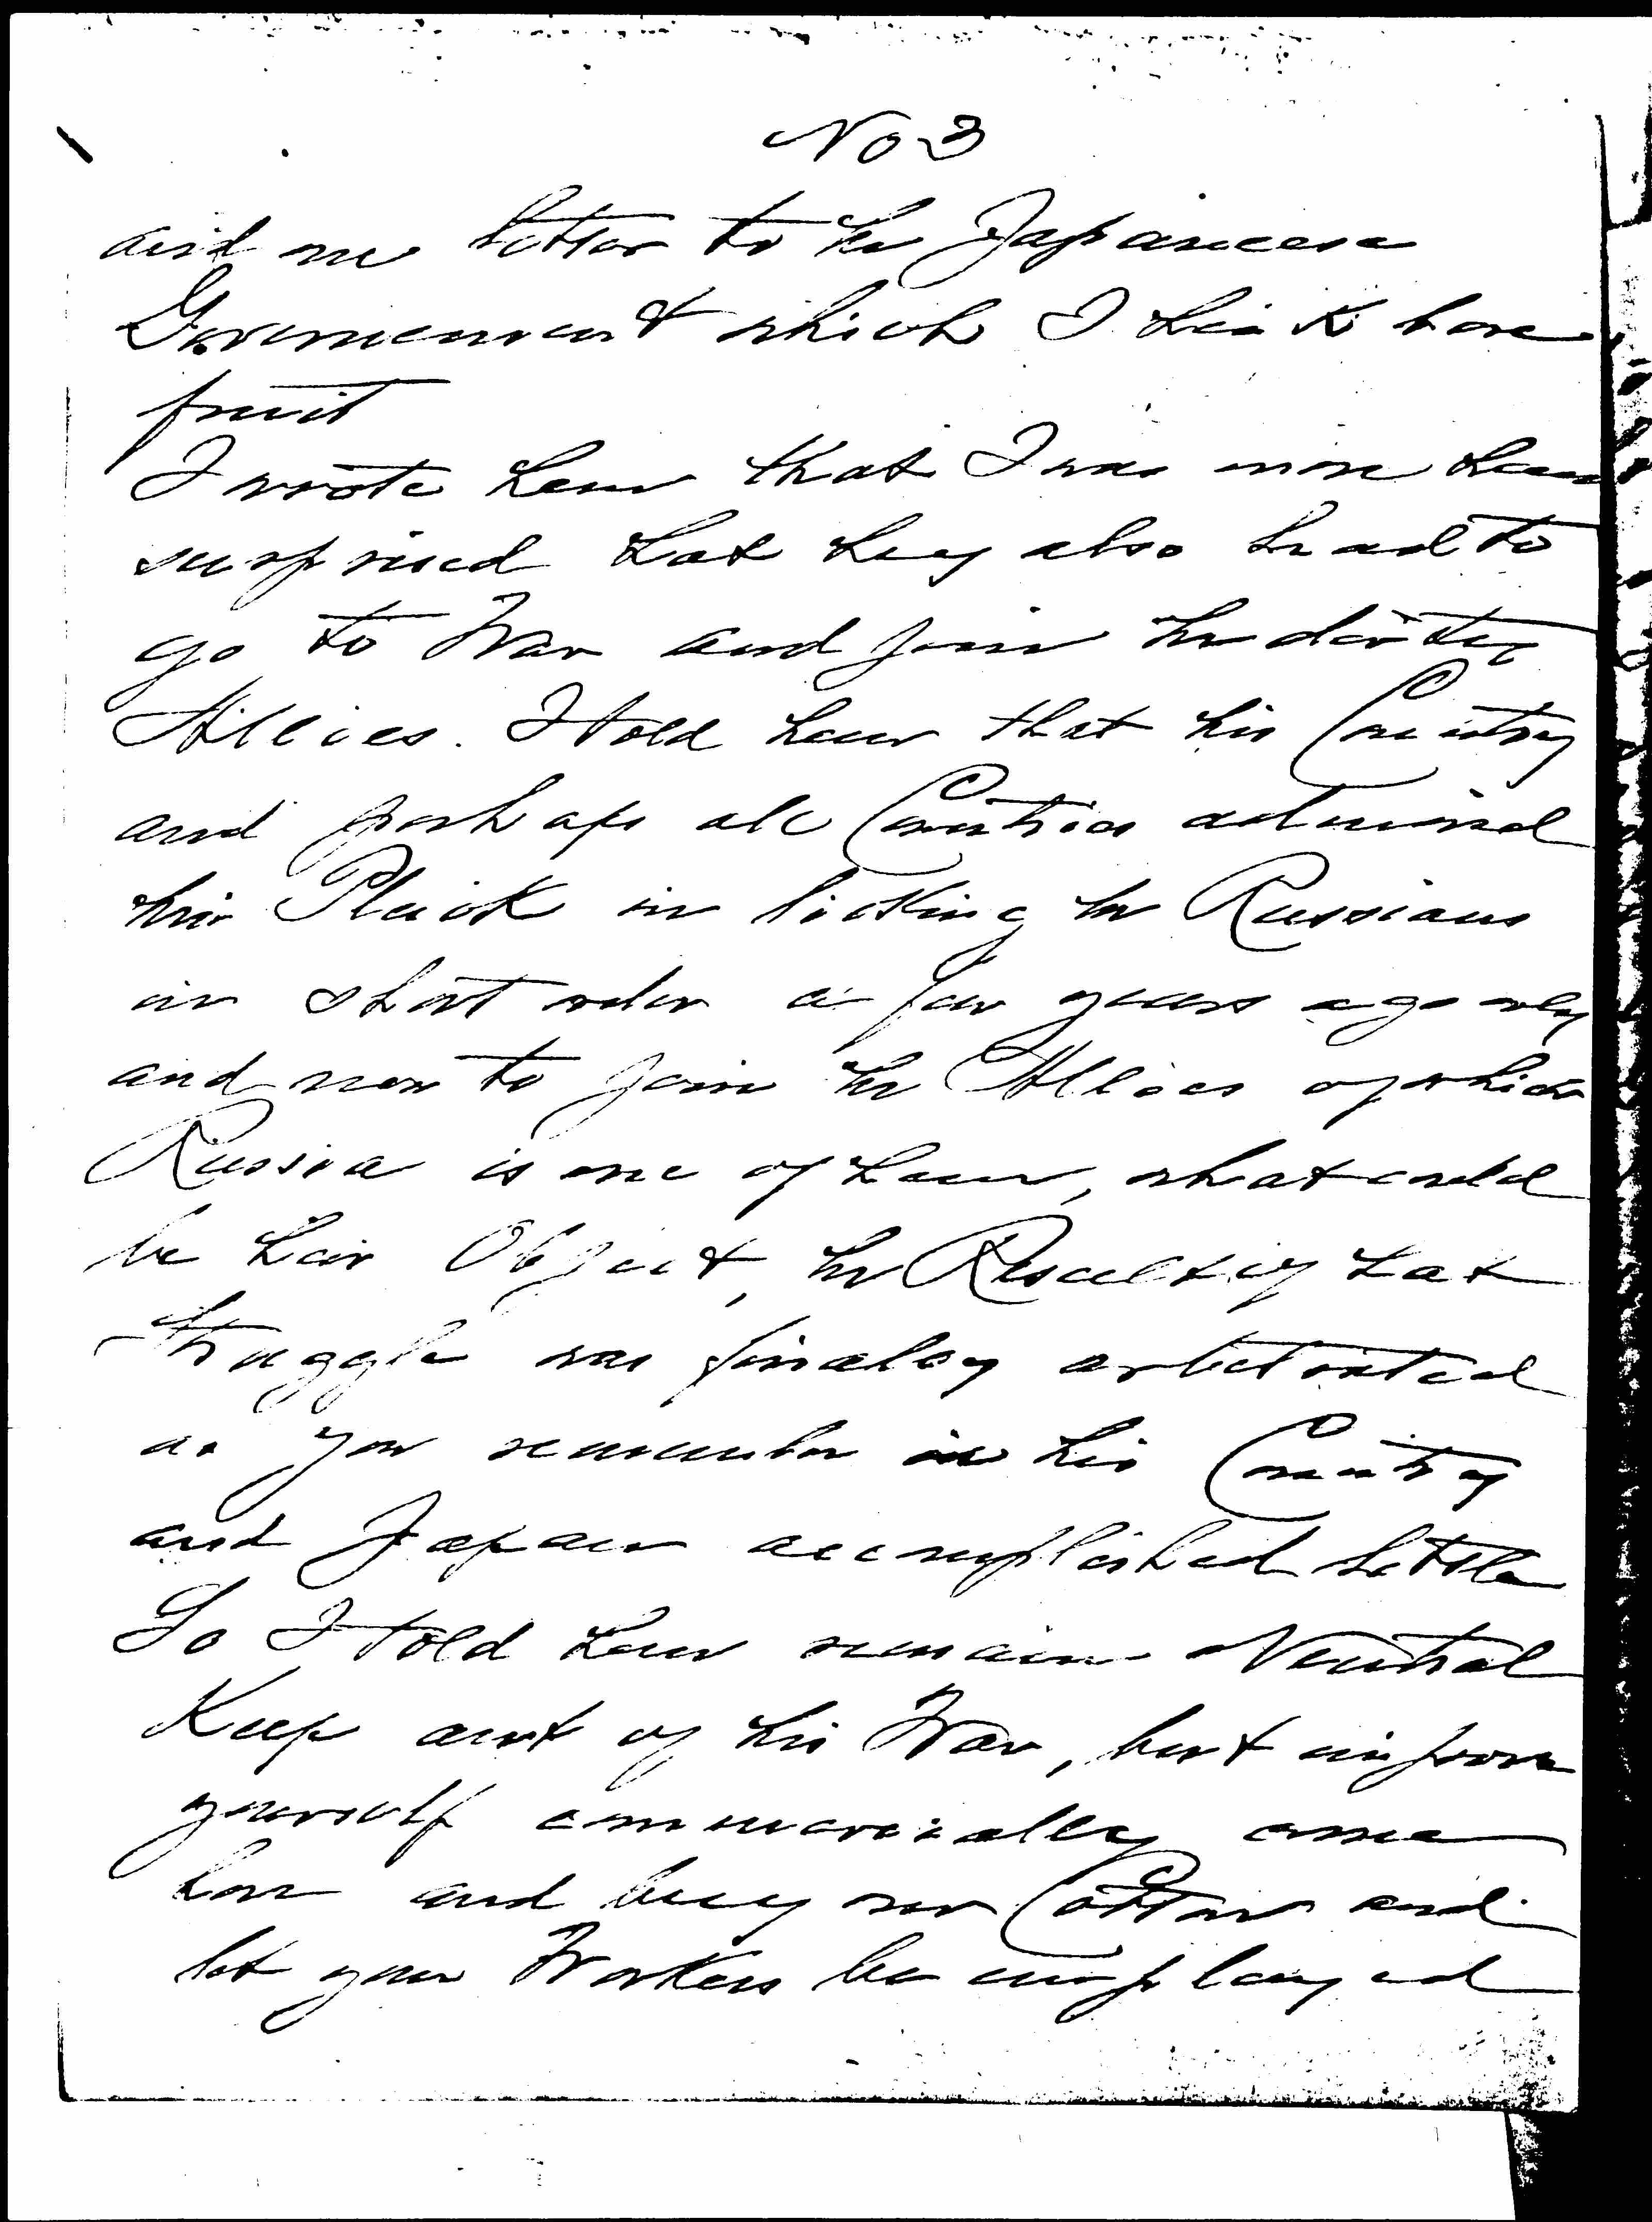 No 3
and one letter to the Japanese
Government which I think bore
fruit
I wrote them that I was more than
surprised that they also had to
go to War and join the dirty
Allies. I told them that this Country
and perhaps all Countries admired
their Pluck in licking the Russians
in short order a few years ago only
and now to join the Allies of which
Russia is one of them, what could
be their Object, the Result of that
struggle was finally arbitrated
as you remember in this Country
and Japan accomplished little
So I told them remain Neutral
Keep out of this War, but improve
yourself commercially come
here and buy our Cotton and
let your Workers be employed